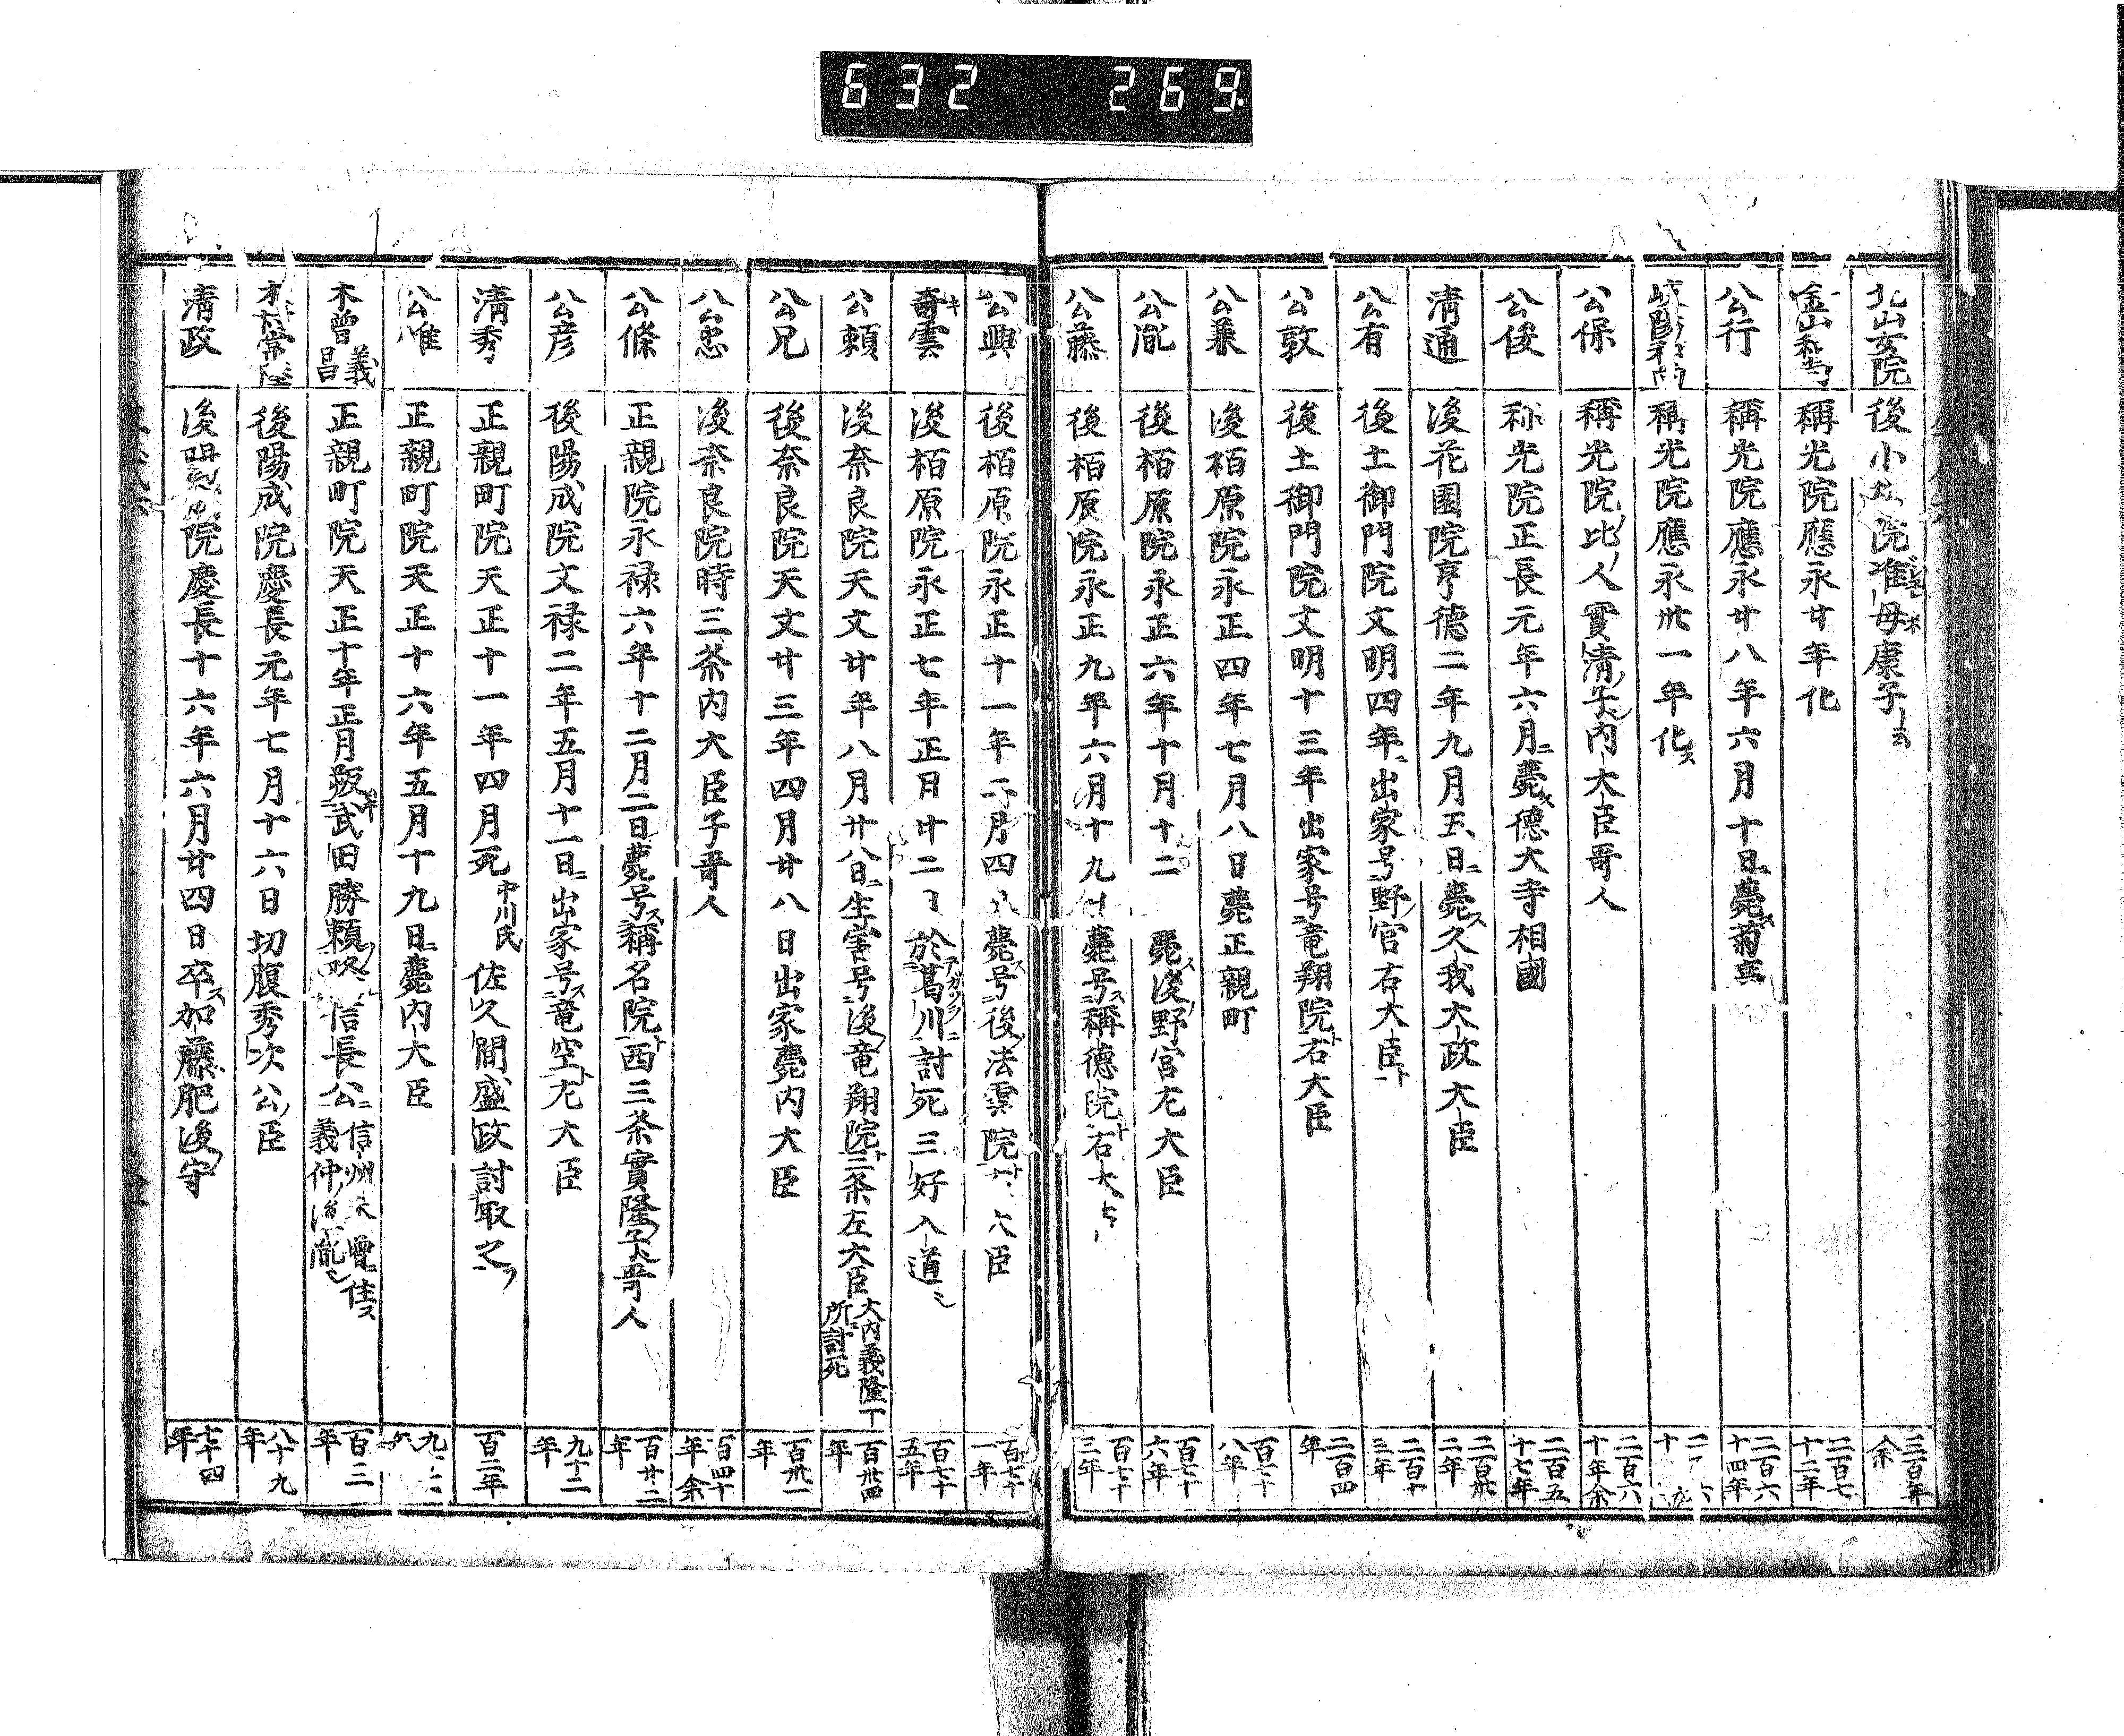 632 269
北山女院 後小 院准母康子ト云 三百年余
金山和尚 稱光院應永廿年化 二百七十二年
公行 稱光院應永廿八年六月十日薨ス菊 二百六十四年
岐陽和尚 稱光院應永卅一年化ス
公保 稱光院ノ比ノ人實清ノ子内大臣哥人 二百六十年余
公俊 称光院正長元年六月ニ薨ス德大寺相國 二百五十七年
清通 後花園院亨德二年九月五日ニ薨ス久我太政大臣 二百卅二年
公有 後土御門院文明四年ニ出家号ニ野ノ宮右大臣ト 二百十三年
公敦 後土御門院文明十三年出家号ニ竜翔院ト右大臣 二百四年
公兼 後柏原院永正四年七月八日薨正親町 百七十八年
公胤 後柏原院永正六年十月十二 薨ス後野宮左大臣 百七十六年
公藤 後柏原院永正九年六月十九日薨号ス稱德院ト右大 百七十三年
公興 後柏原院永正十一年 月四 薨ス号ニ後法雲院ト 大臣 百七十一年
奇雲 後柏原院永正七年正月廿二 於葛川ニ討死三好入道 百七十五年
公頼 後奈良院天文廿年八月廿八日ニ生害号ニ後竜翔院ト三条左大臣 大内義隆下所討死 百卅四年
公兄 後奈良院天文廿三年四月廿八日出家薨内大臣 百卅一年
公忠 後奈良院時三条内大臣子哥人 百四十年余
公條 正親院永禄六年十二月二日薨号ス稱名院ト西三条實隆ノ子哥人 百廿二年
公彦 後陽成院文禄二年五月十一日ニ出家号ス竜空ト左大臣 九十二年
清秀 正親町院天正十一年四月死 中川氏 佐久間盛政討取之ヲ 百二年
公維 正親町院天正十六年五月十九日ニ薨内大臣
木曽義昌 正親町院天正十年正月叛武田勝頼 信長公ニ 信州木曽ニ住ス 義仲ノ後胤 百三年
木村常陸 後陽成院慶長元年七月十六日切腹秀次公ノ臣 八十九年
清政 後 院慶長十六年六月廿四日卒ス加藤肥後ノ守 七十四年